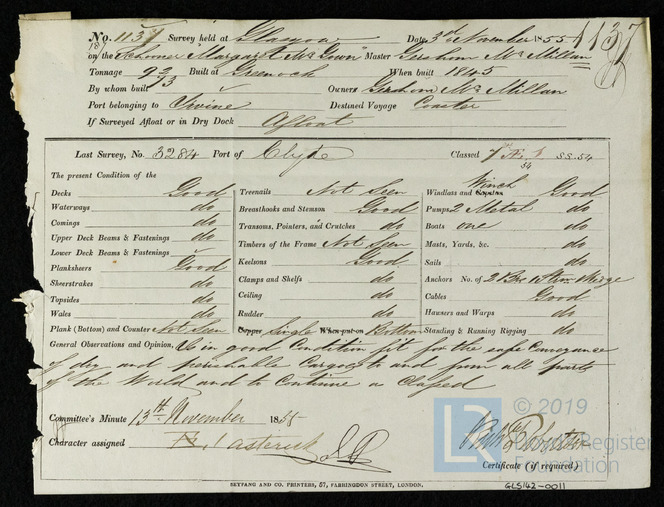 No. 1137 Survey held at Glasgow Date, 3rd November 1855 1137
on the Schooner "Margaret McGown" Master Gershom McMillan
Tonnage 92 Built at Greenock When built 1845
By whom built Owners Gershom McMillan
Port belonging to Irvine Destined Voyage Coaster
If Surveyed Afloat or in Dry Dock Afloat
Last Survey, No. 3284 Port of Clyde Classed SS.54
The present Condition of the
Decks Good
Waterways do
Comings do
Upper Deck Beams & Fastenings do
Lower Deck Beams & Fastenings
Planksheers Good
Sheerstrakes do
Topsides do
Wales do
Plank (Bottom) and Counter Not Seen
Treenails Not Seen
Breasthooks and Stemson Good
Transoms, Pointers, and Crutches do
Timbers of the Frame Not Seen
Keelsons Good
Clamps and Shelfs do
Ceiling do
Rudder do
Copper Single When put on Bottom
Winch
Windlass and Capstan Good
Pumps 2 Metal do
Boats one do
Masts, Yards, &c. do
Sails do
Anchors No. of 2 Brs 1 Strm
Cables Good
Hawsers and Warps do
Standing & Running Rigging do
General Observations and Opinion, Is in good Condition fit for the safe Conveyance
of dry and perishable Cargoes to and from all parts
of the World and to Continue as Classed
Committee's Minute 13th November 1855
Character assigned asterisk
Certificate (if required)
SEYFANG AND CO. PRINTERS, 57, FARRINGDON STREET, LONDON.
GLS142-0011
LR © 2019
Lloyd's Register
Foundation